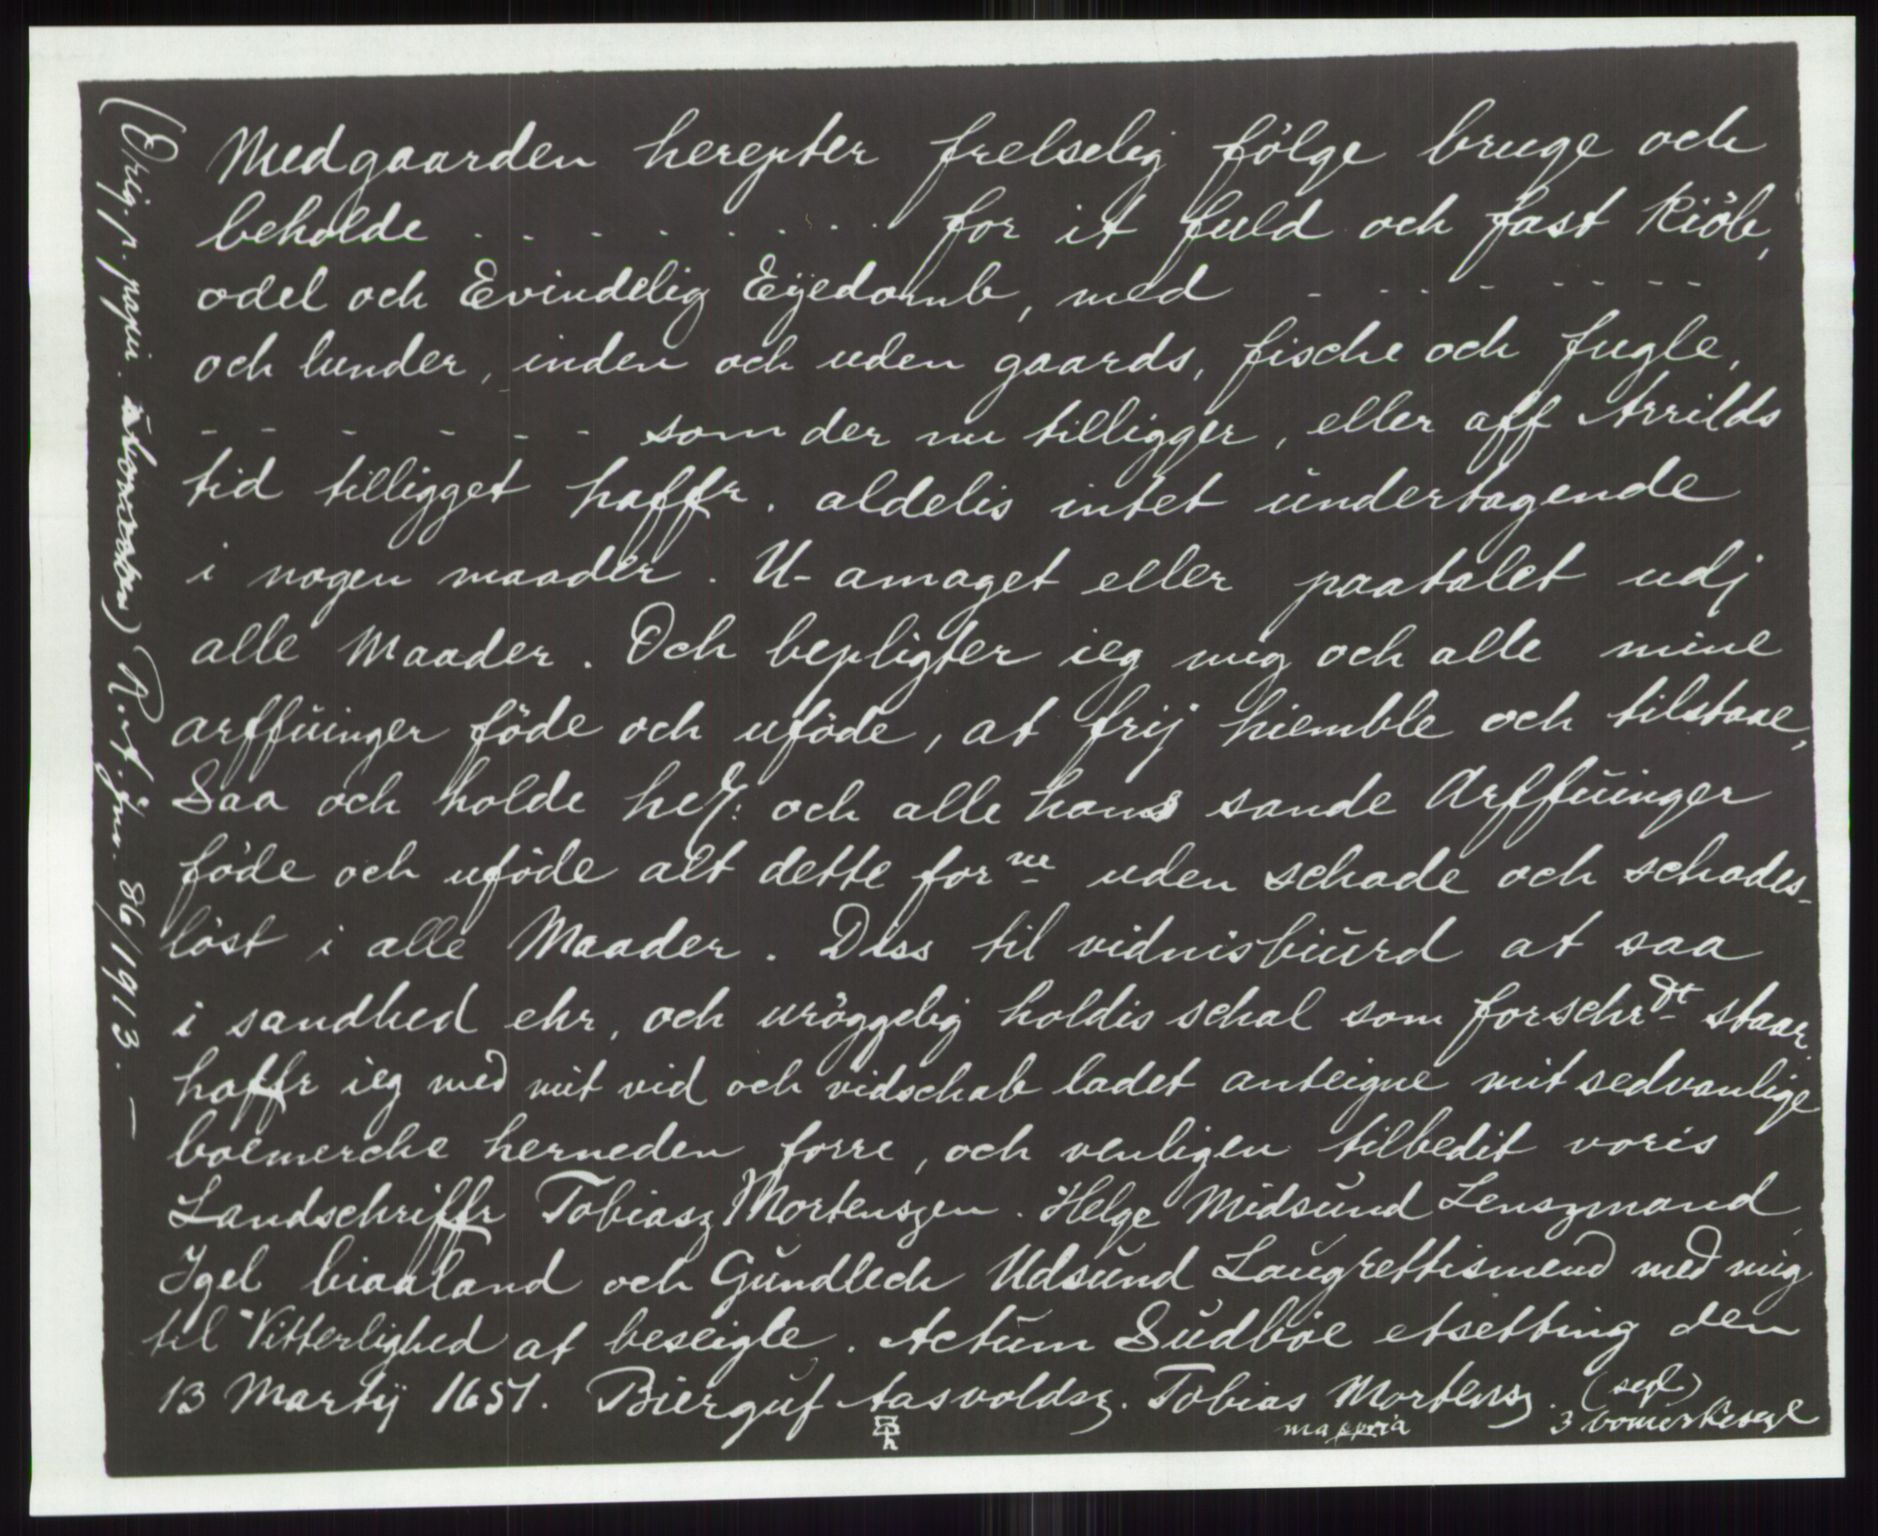 Medgaarden herepter frelselig følge bruge och
beholde . . . . . . . . . for it fuld och fast kiöb,
odel och Evindelig Eÿedomb, med - - - - - - - -
och lunder, inden och uden gaards, fische och fugle,
- - - - - - - som der nu tilligger, eller aff Arrilds
tid tilligget haffr. aldelis intet undertagende
i nogen maader. U-amaget eller paatalet udj
alle Maader. Och bepligter ieg mig och alle mine
arffuinger föde och uföde, at frij hiemble och tilstaae,
Saa och holde hej: och alle hans sande Arffuinger
föde och uföde alt dette for ne uden schade och schades-
löst i alle Maader. Dess til vidnisbiurd at saa
i sandhed ehr, och uröggelig holdis schal som forschr dt staar.
haffr ieg med mit vid och vidschab ladet anteigne mit sedvanlige
boemerche herneden forre, och venligen tilbedit voris
Landschriffr Tobiasz Mortenszen. Helge Midsund Lenszmand,
Igel biaaland och Gundlech Udsund Laugrettismend med mig
til Vitterlighed at beseigle. Actum Sudböe etsetting den
13 Martij 1651. Bierguf Aasvoldsz. Tobias Mortensz. (segl)
mappria 3 bomerkesegl
(Orig. p. papir. ) R. A. jnr. 86/1913. —